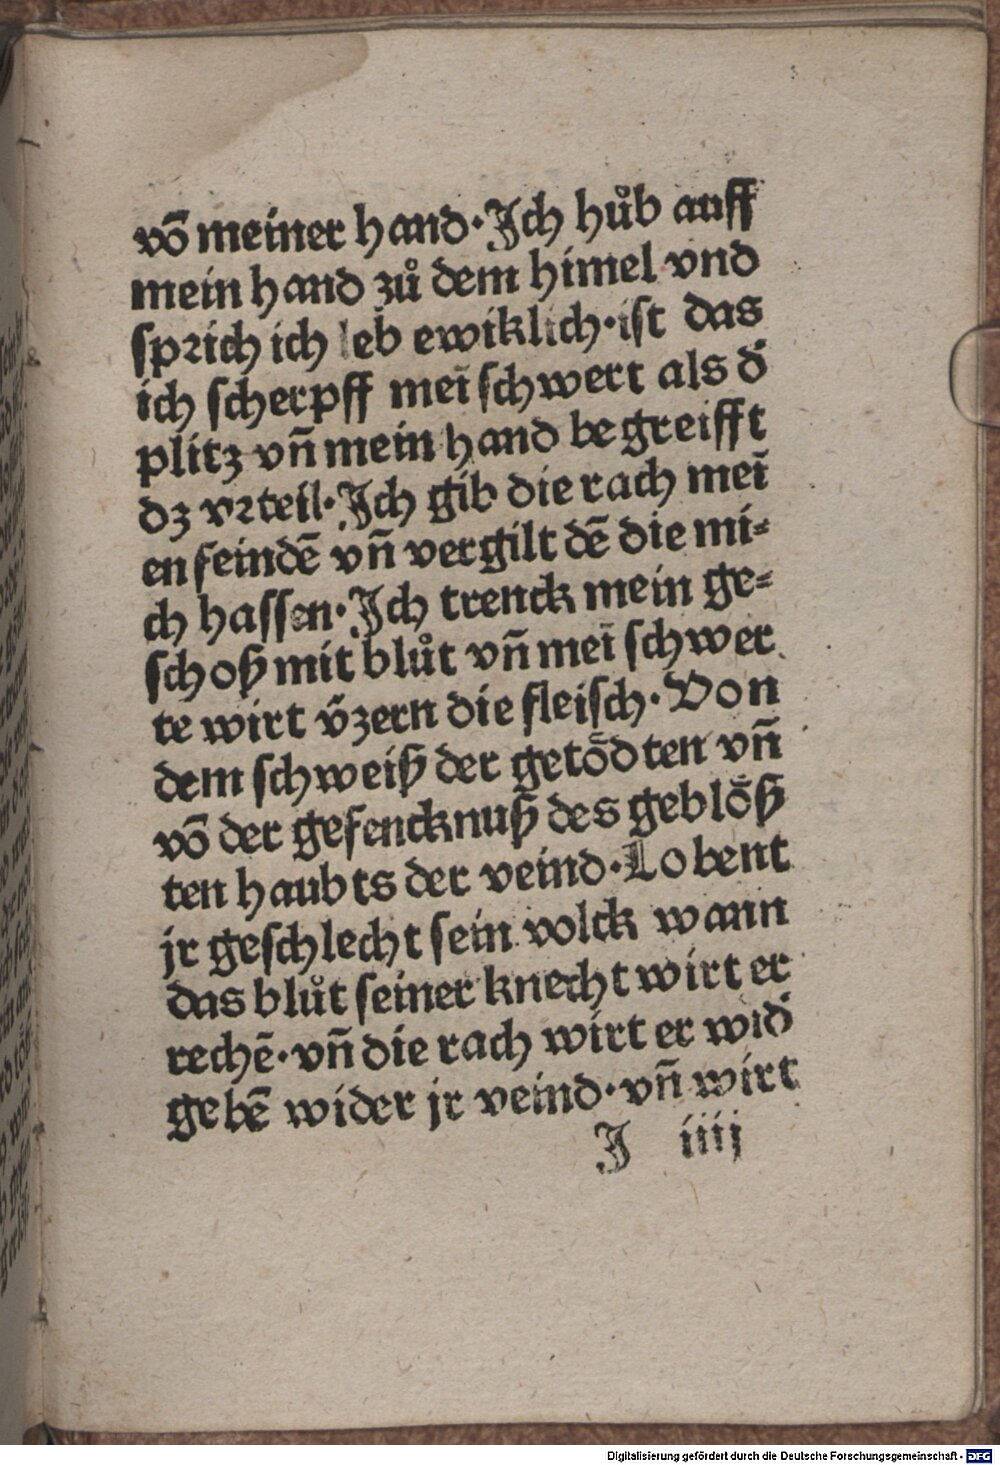 võ meiner hand·Jch hůb auff
mein hand zů dem himel vnd
sprich ich leb ewiklich·ist das
ich scherpff meī schwert als d̛
plitz vñ mein hand begreifft
dz vrteil·Jch gib die rach meī
en feindē vñ vergilt dē die mi⸗
ch hassen·Jch trenck mein ge⸗
schoß mit blůt vñ meī schwer
te wirt v̄zern die fleisch·Von
dem schweiß der getödten vñ
võ der gefencknuß des geblöß
ten haubts der veind·Lobent
jr geschlecht sein volck wann
das blůt seiner knecht wirt er
rechē·vñ die rach wirt er wid̛
gebē wider jr veind·vñ wirt
J iiij
Digitalisierung gefördert durch die Deutsche Forschungsgemeinschaft - DFG